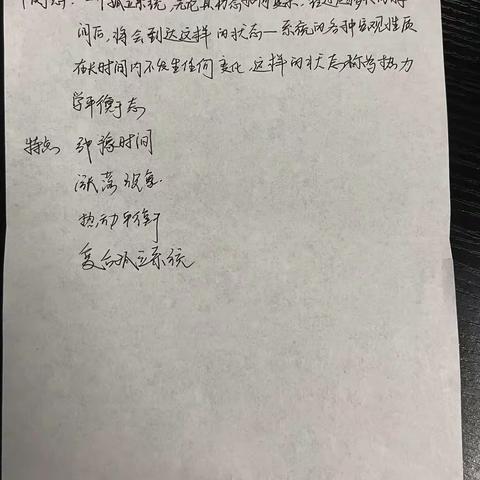 一个孤立系统,无论其初态如何复杂,经过足够长的时
间后,将会到达这样的状态—系统的各种宏观性质
在长时间内不发生任何变化,这样的状态称为热力
学平衡态
特点 弛豫时间
涨落现象
热动平衡
复合孤立系统